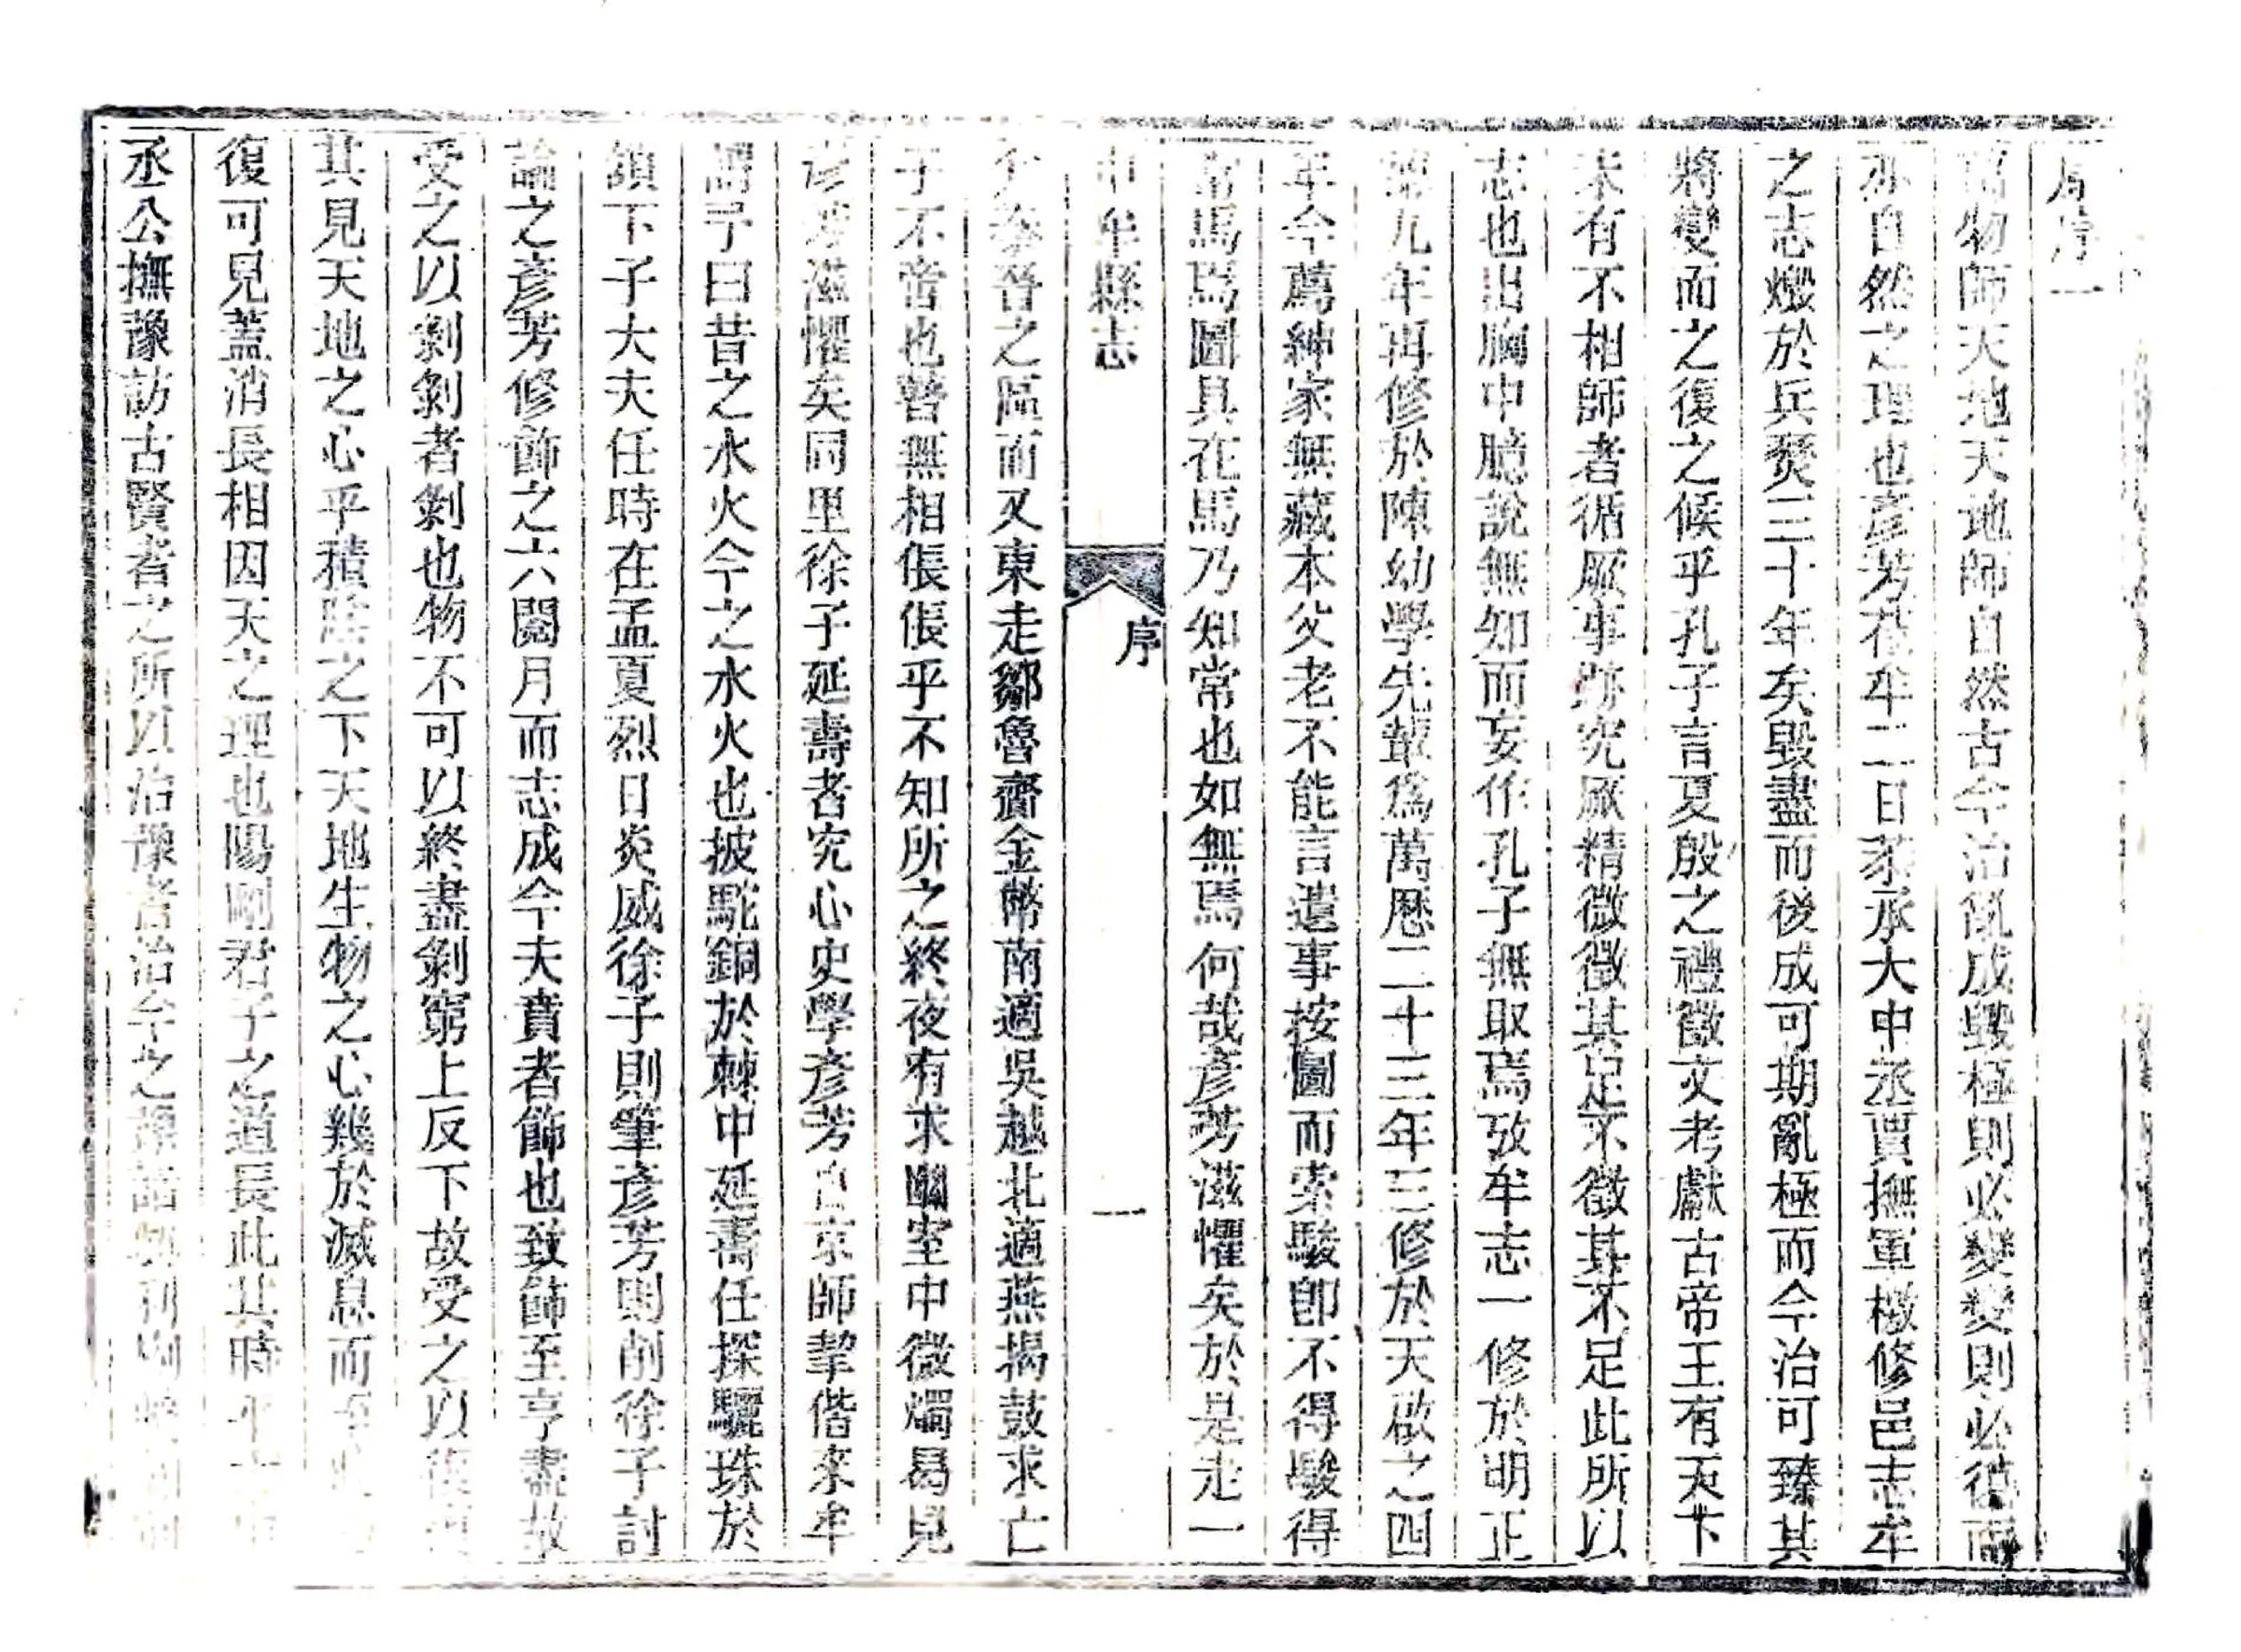 序一
萬物師天地天地師自然古今治亂成毀極則必變變則必復而
亦自然之理也彥芳蒞牟二日承大中丞賈撫軍檄修邑志牟
之志燬於兵燹三十年矣毀盡而後成可期亂極而今治可臻其
將變而之復之候乎孔子言夏殷之禮徵文考獻古帝王有天下
未有不相師者循厥事跡究厥精微徵其足不徵其不足此所以
志也出胸中臆說無知而妄作孔子無取焉攷牟志一修於明正
德九年再修於陳幼學先輩爲萬歷二十三年三修於天啟之四
年今薦紳家無藏本父老不能言遺事按圖而索駿卽不得駿得
常馬焉圖具在馬乃知常也如無焉何哉彥芳滋懼矣於是走一
中牟縣志
序
一
介秦晉之區而又東走鄒魯齎金幣南適吳越北適燕揭鼓求亡
子不啻也瞽無相倀倀乎不知所之終夜有求幽室中微燭曷見
彥芳滋懼矣同里徐子延壽者究心史學彥芳自京師挈偕來牟
謂予曰昔之水火今之水火也披駝銅於棘中延壽任探驪珠於
頷下子大夫任時在孟夏烈日炎威徐子則筆彥芳則削徐子討
論之彥芳修飾之六閱月而志成今夫賁者飾也致飾至亨盡故
受之以剝剝者剝也物不可以終盡剝窮上反下故受之以復
其見天地之心乎積陰之下天地生物之心幾於滅息而至
復可見蓋消長相因天之理也陽剛君子之道長此其時乎
丞公撫豫訪古賢者之所以治豫者治今之豫